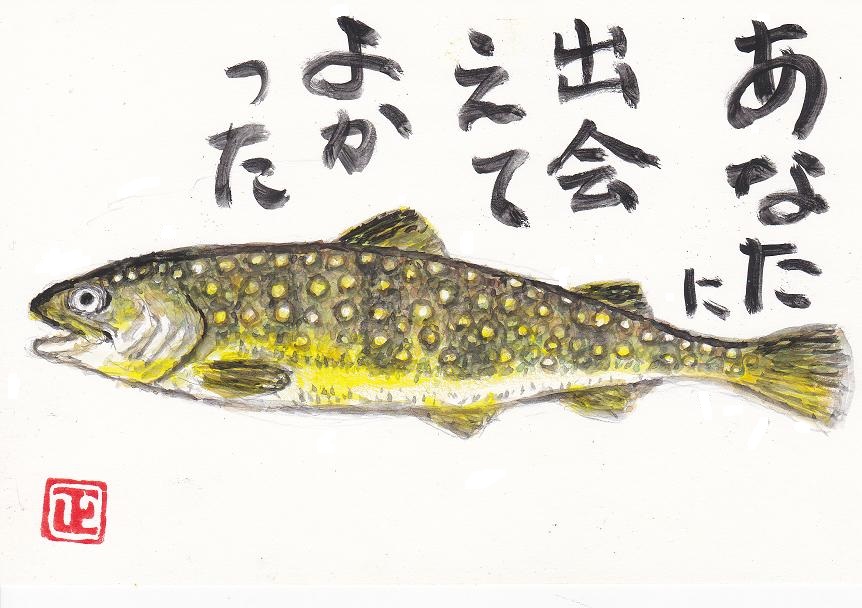 あなた
に
出会
えて
よか
った